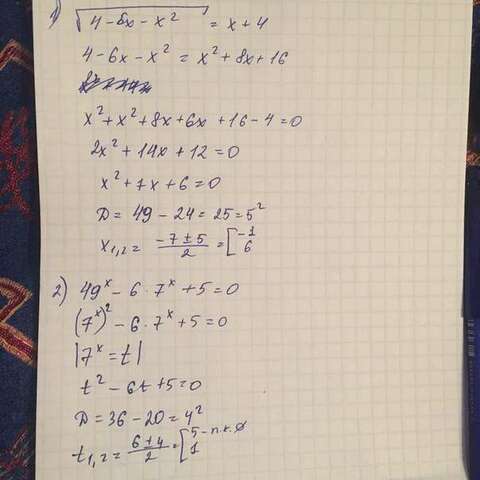 1) √4-6x-x² = x+4
4-6x-x² = x²+8x+16
x²+x²+8x+6x+16-4=0
2x²+14x+12=0
x²+7x+6=0
D= 49-24=25=5²
x₁,₂= (-7±5)/2 = [-1 6
2) 49ˣ-6·7ˣ+5=0
(7ˣ)²-6·7ˣ+5=0
|7ˣ=t|
t²-6t+5=0
D=36-20=4²
t₁,₂= (6±4)/2 = [5-п.к.∅ 1